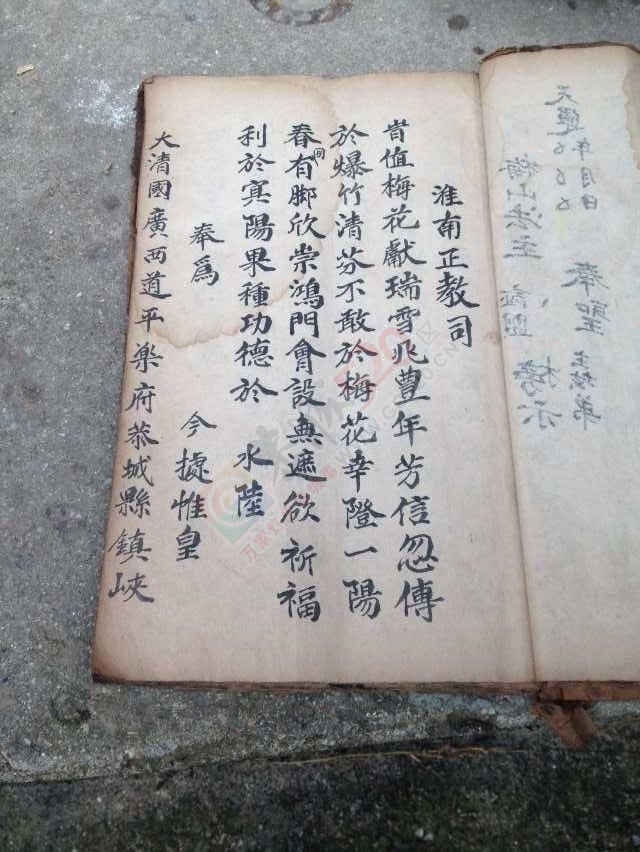 天運 年 月 日
奉聖 弟
梅山法主 證盟 榜示
淮南正教司
旹值梅花獻瑞雪兆豐年芳信忽傳
於爆竹清芬不敢於梅花幸隥一陽
春回有脚欣崇鴻門會設無遮欲祈福
利於冥陽果種功德於 水陸
奉爲 今據惟皇
大清國廣西道平樂府恭城縣鎮峽